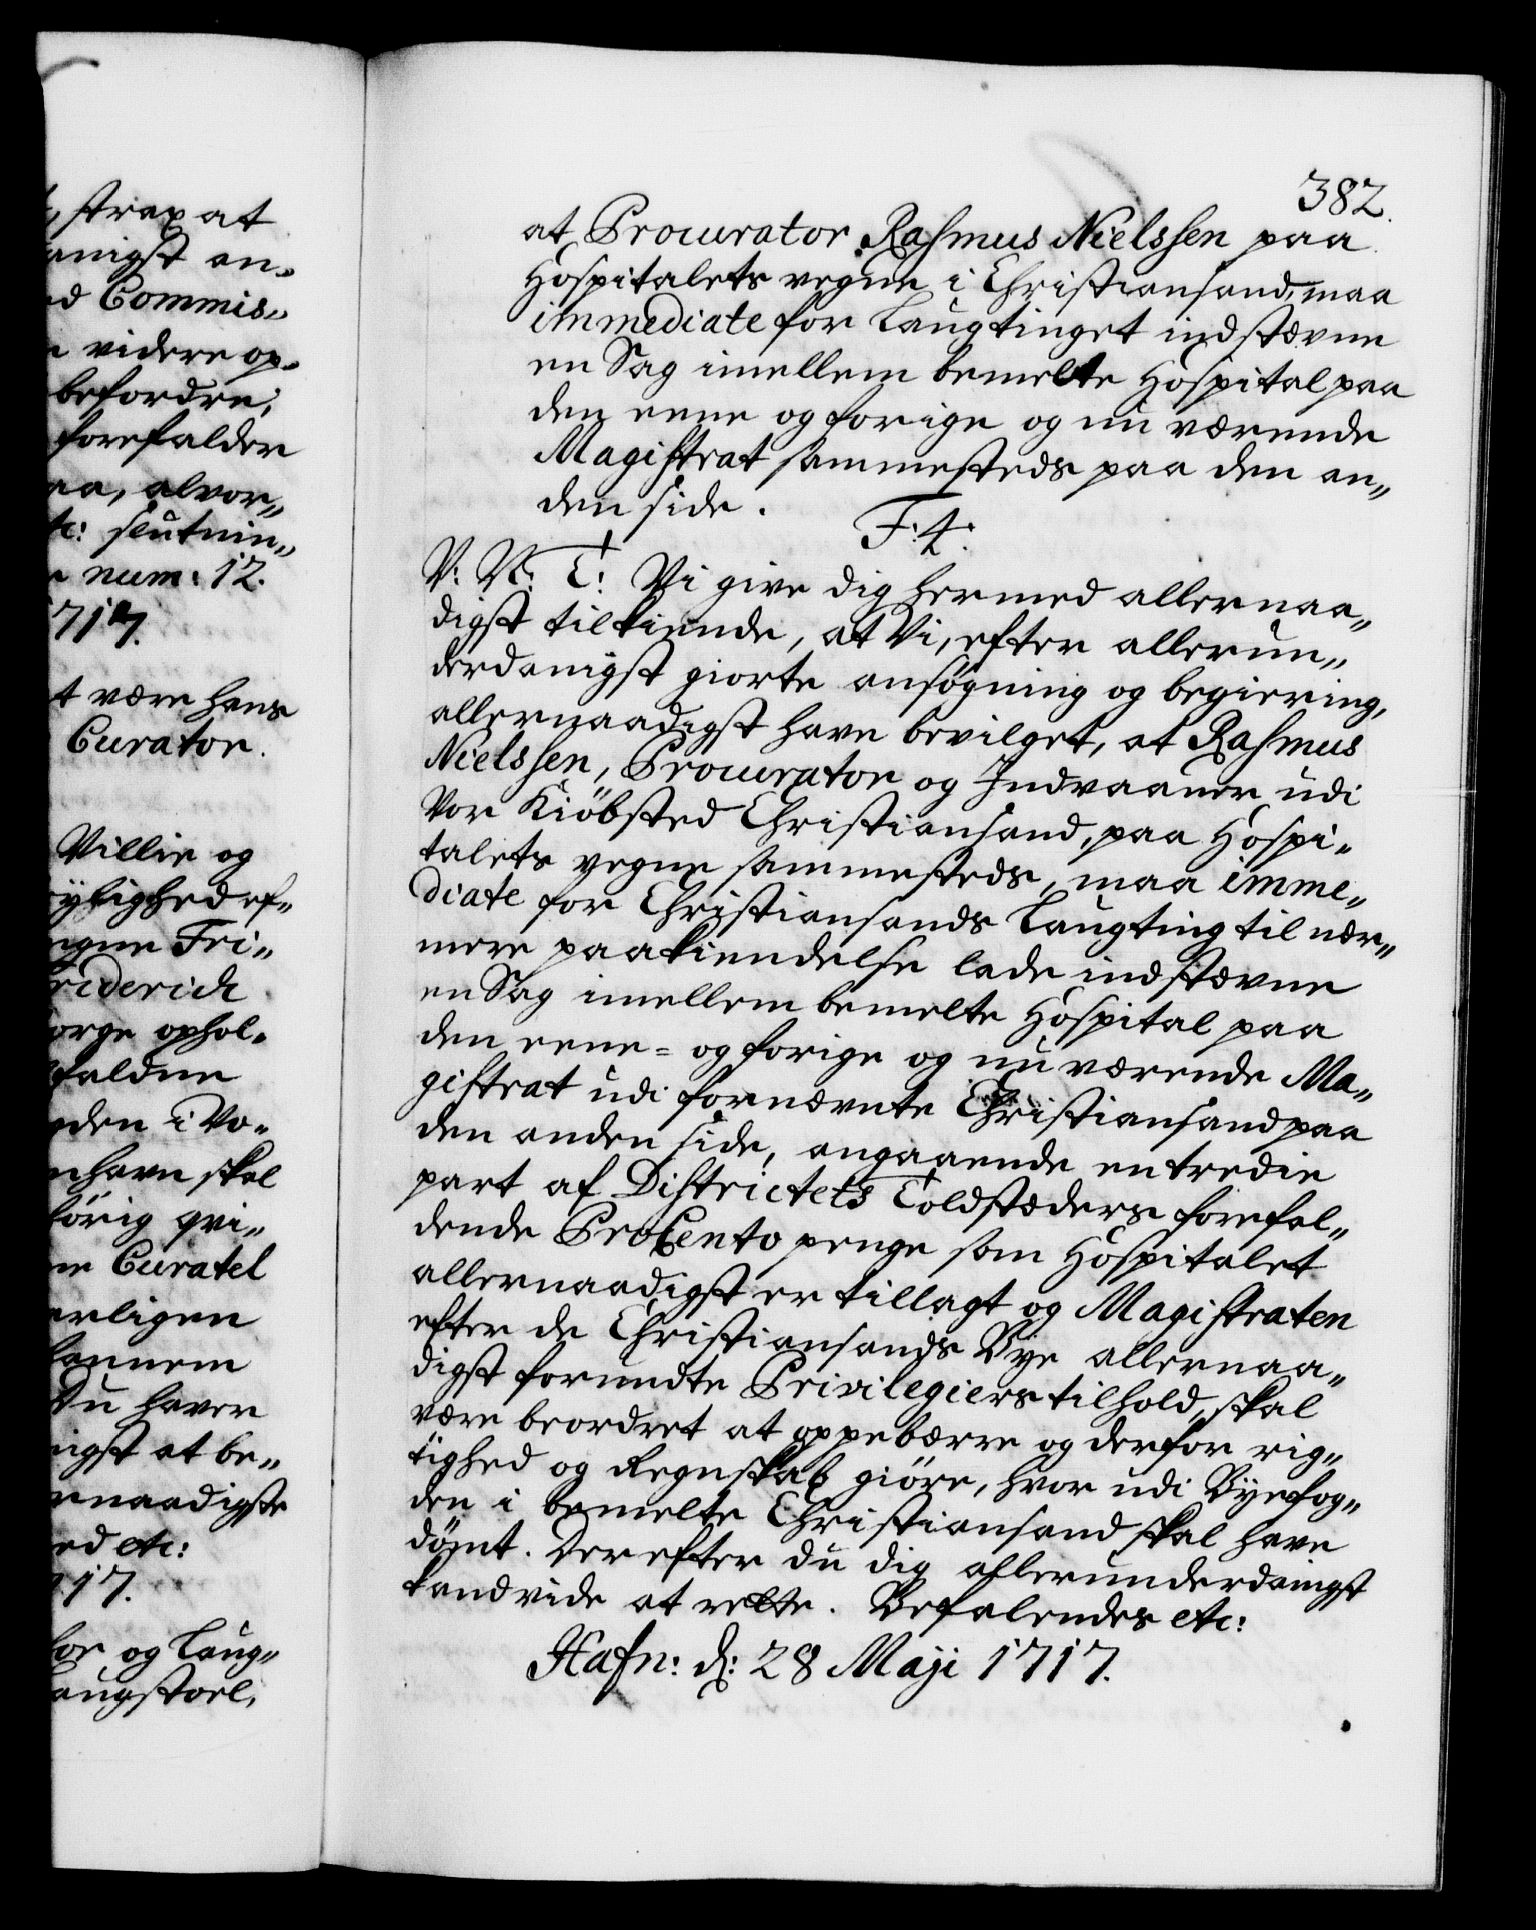 , strax at
anigst an„
ed Commis„
videre op„
befordre;
forefalder
aa, alvor„
etc: slutnin„
num: 12.
1717.
t være hans
Curator.
Villie og
ylighed ef„
egne Fri„
riderich
orge ophol„
faldne
den i Vo„
nhavn skal
hørig qvi„
Curatel
erligen
hannem
Du haver
igst at be„
ernaadigste
ed etc:
17.
for og Laug„
augstoel,
382.
at Procurator Rasmus Nielssen paa
Hospitalets vegne i Christiansand, maa
immediate for Laugtinget indstævne
en Sag imellem bemelte Hospital paa
den eene og forige og nu værende
Magistrat sammesteds paa den an„
den side.
F: 4.
V: N: T: Vi give dig hermed allernaa„
digst tilkiende, at Vi, efter allerun„
derdanigst giorte ansøgning og begiering,
allernaadigst have bevilget, at Rasmus
Nielssen, Procurator og Indvaaner udi
Vor Kiöbsted Christiansand, paa Hospi„
talets vegne sammesteds, maa imme„
diate for Christiansands Laugting til nær„
mere paakiendelse lade indstævne
en Sag imellem bemelte Hospital paa
den eene= og forige og nu værende Ma„
gistrat udi fornævnte Christiansand paa
den anden side, angaaende en tredie
part af Districtets Toldstæders forefal„
dende ProCento penge som Hospitalet
allernaadigst er tillagt og Magistraten
efter de Christiansands Bye allernaa„
digst forundte Privilegiers tilhold, skal
være beordret at oppebærre og derfor rig„
tighed og Regnskab giöre, hvor udi Byefog„
den i bemelte Christiansand skal have
dömt. Derefter du dig allerunderdanigst
kand vide at rette. Befalendes etc:
Hafn: d: 28 Maji 1717.